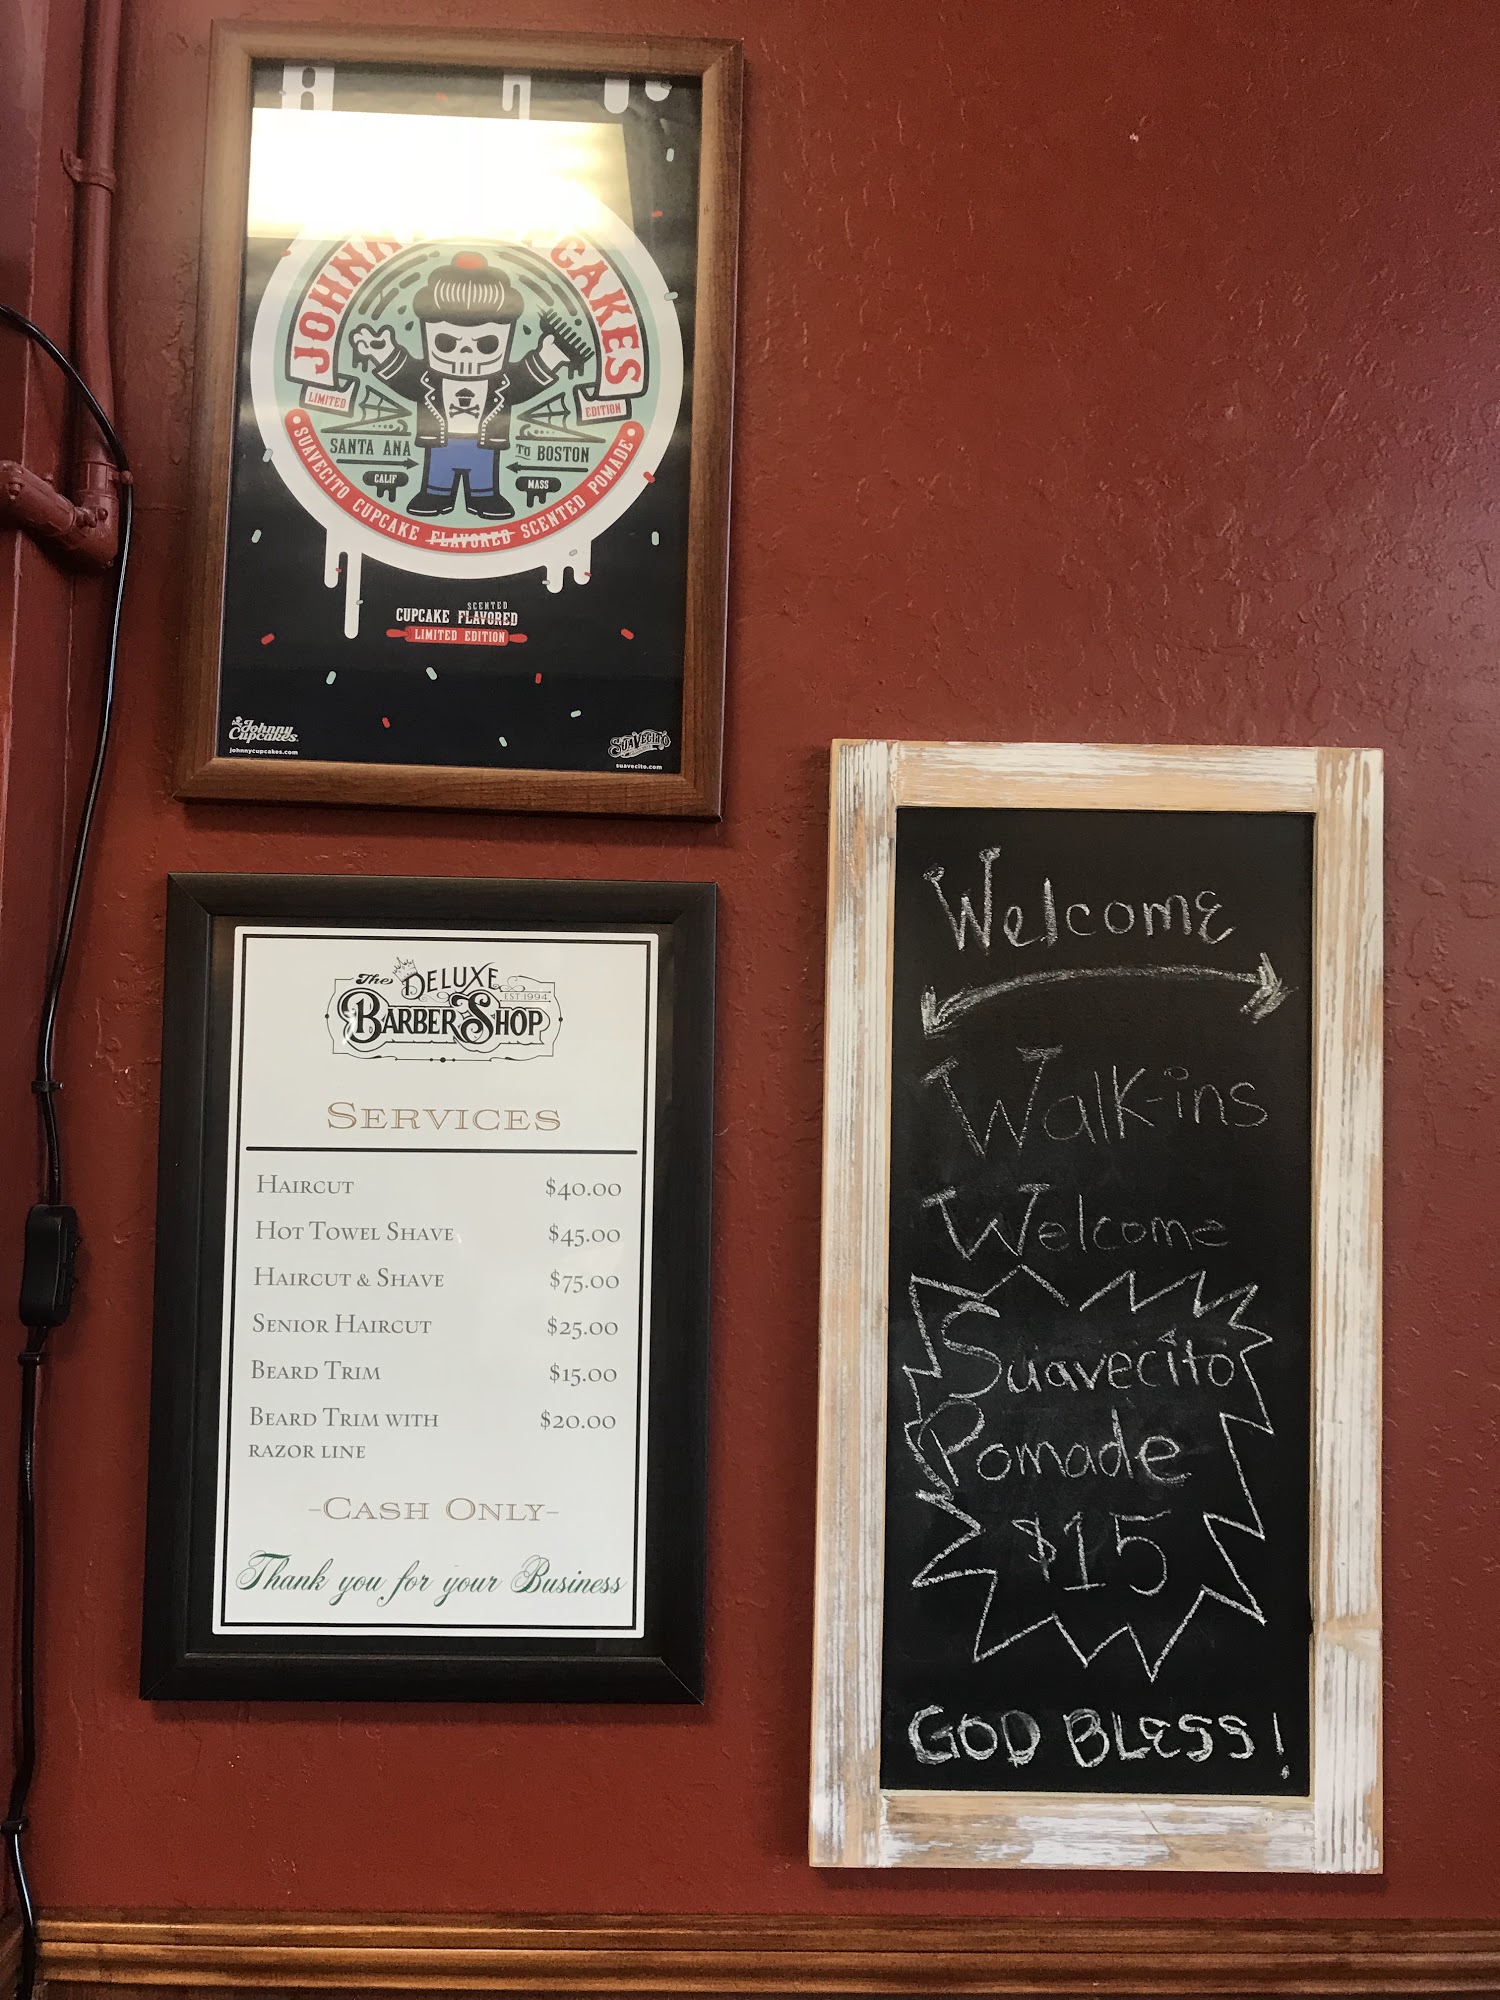 JOHNN
CAKES
LIMITED
EDITION
SANTA ANA
TO BOSTON
CALIF
MASS
SUAVECITO CUPCAKE FLAVORED SCENTED POMADE
SCENTED
CUPCAKE FLAVORED
LIMITED EDITION
Johnny
Cupcakes
johnnycupcakes.com
SUAVECITO
suavecito.com
The DELUXE
EST 1994
BARBER SHOP
SERVICES
HAIRCUT $40.00
HOT TOWEL SHAVE $45.00
HAIRCUT & SHAVE $75.00
SENIOR HAIRCUT $25.00
BEARD TRIM $15.00
BEARD TRIM WITH $20.00
RAZOR LINE
-CASH ONLY-
Thank you for your Business
Welcome
Walk-ins
Welcome
Suavecito
Pomade
$15
GOD BLESS!